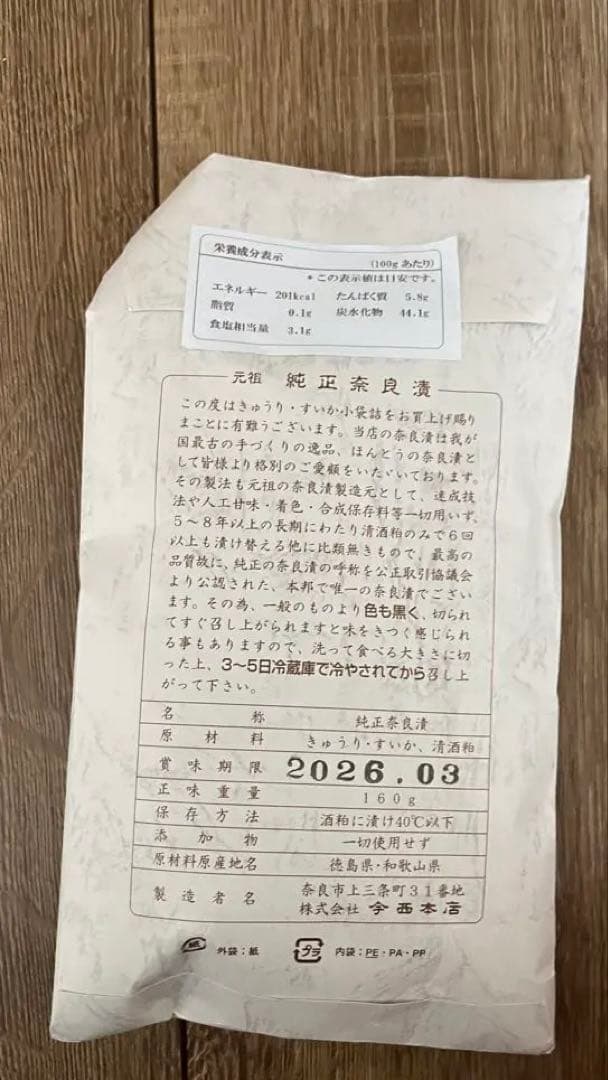 栄養成分表示 (100g あたり)
* この表示値は目安です。
エネルギー 201kcal たんぱく質 5.8g
脂質 0.1g 炭水化物 44.1g
食塩相当量 3.1g
元祖 純正奈良漬
この度はきゅうり・すいか小袋詰をお買上げ賜り
まことに有難うございます。当店の奈良漬は我が
国最古の手づくりの逸品、ほんとうの奈良漬と
して皆様より格別のご愛顧をいたゞいております。
その製法も元祖の奈良漬製造元として、速成技
法や人工甘味・着色・合成保存料等一切用いず、
5〜8年以上の長期にわたり清酒粕のみで6回
以上も漬け替える他に比類無きもので、最高の
品質故に、純正の奈良漬の呼称を公正取引協議会
より公認された、本邦で唯一の奈良漬でござい
ます。その為、一般のものより色も黒く、切られ
てすぐ召し上がられますと味をきつく感じられ
る事もありますので、洗って食べる大きさに切
った上、3〜5日冷蔵庫で冷やされてから召し上
がって下さい。
名称 純正奈良漬
原材料 きゅうり・すいか、清酒粕
賞味期限 2026.03
正味重量 160g
保存方法 酒粕に漬け40℃以下
添加物 一切使用せず
原材料原産地名 徳島県・和歌山県
製造者名 奈良市上三条町31番地
株式会社 今西本店
紙 外装:紙 プラ 内装:PE・PA・PP